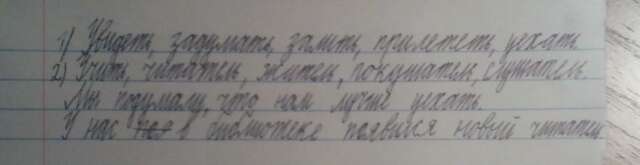 1) Увидеть, задумать, залить, прилететь, уехать.
2) Учить, читатель, житель, покупатель, слушатель.
Мы подумалу, что нам лучше уехать.
У нас в библиотеке появился новый читатель